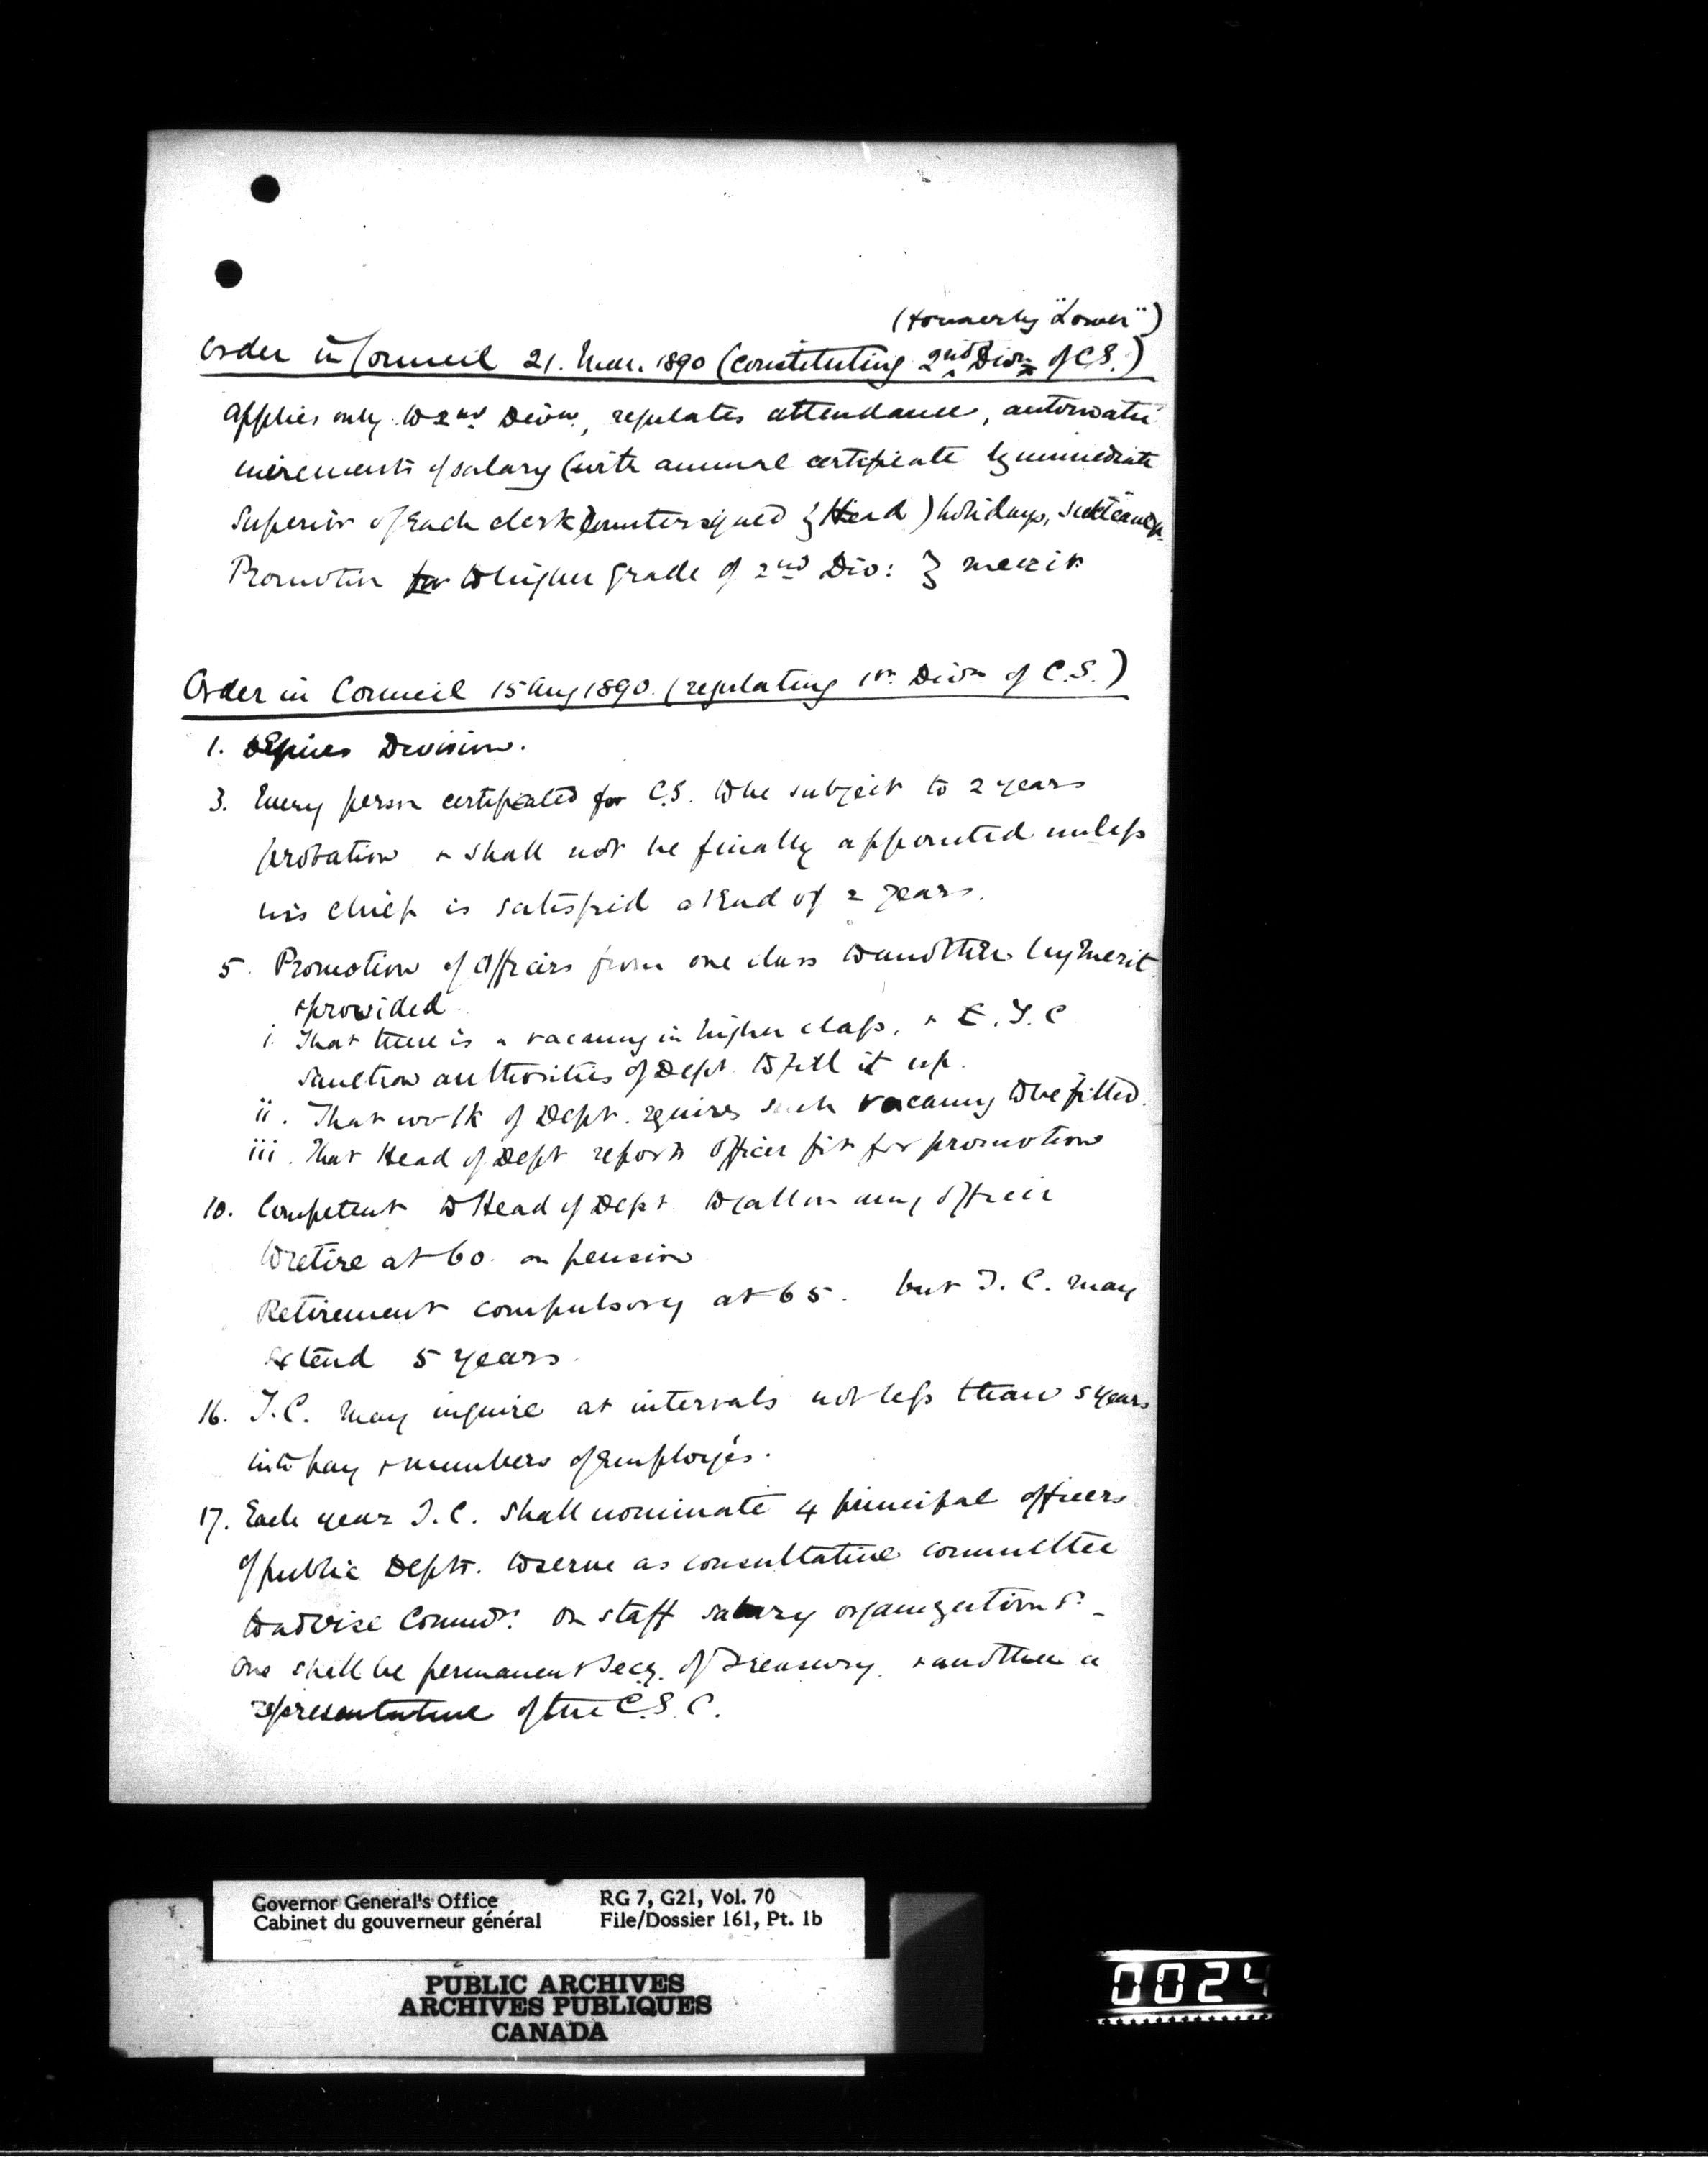 (formerly "Lower")
Order in Council 21. Mar. 1890 (constituting 2nd Divn of C.S.)
Applies only to 2nd Divn, regulates attendance, automatic
increments of salary (with annual certificate by immediate
Superior of each clerk countersigned by Head) holidays, sick leave &c.
Promotion to higher grade of 2nd Div: by merit
Order in Council 15 Aug 1890. (regulating 1st Divn of C.S.)
1. Defines Division.
3. Every person certificated for C.S. to be subject to 2 years
probation & shall not be finally appointed unless
his chief is satisfied at end of 2 years.
5. Promotion of Officers from one class to another by merit
& provided
i. That there is a vacancy in higher class, & T.C
sanction authorities of Dept. to fill it up.
ii. That work of Dept. requires such vacancy to be filled.
iii. That Head of Dept reports Officer fit for promotion
10. Competent to Head of Dept. to call on any officer
to retire at 60. on pension
Retirement compulsory at 65. but T.C. may
extend 5 years.
16. T.C. may inquire at intervals not less than 5 years
into pay & numbers of employés.
17. Each year T.C. shall nominate 4 principal officers
of public Depts. to serve as consultative committee
to advise on staff salary organization &c _
One shall be permanent Secy. of Treasury. & another a
representative of the C.S.C.
Governor General's Office
Cabinet du gouverneur général
RG 7, G21, Vol. 70
File/Dossier 161, Pt. 1b
PUBLIC ARCHIVES
ARCHIVES PUBLIQUES
CANADA
0024